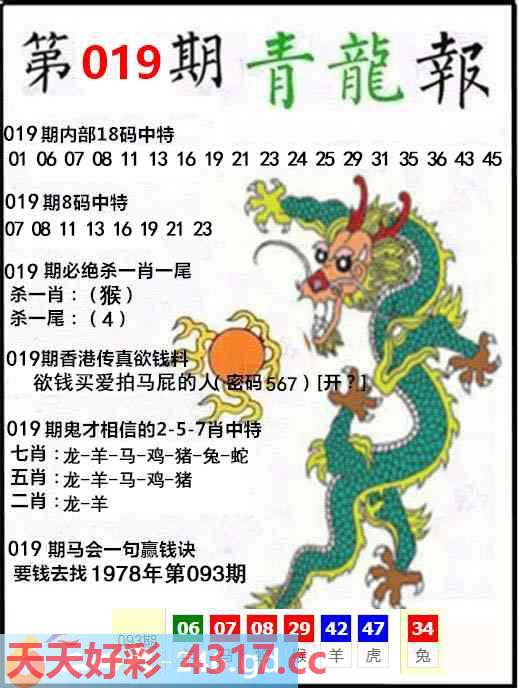 第 019 期 青龍報
019期内部18码中特
01 06 07 08 11 13 16 19 21 23 24 25 29 31 35 36 43 45
019期8码中特
07 08 11 13 16 19 21 23
019 期必绝杀一肖一尾
杀一肖：（猴）
杀一尾：（4）
019期香港传真欲钱料
欲钱买爱拍马屁的人（密码567）[开？]
019期鬼才相信的2-5-7肖中特
七肖：龙-羊-马-鸡-猪-兔-蛇
五肖：龙-羊-马-鸡-猪
二肖：龙-羊
019 期马会一句赢钱诀
要钱去找1978年第093期
06 07 08 29 42 47 34
093期 猴 羊 虎 兔
天天好彩 4317.cc